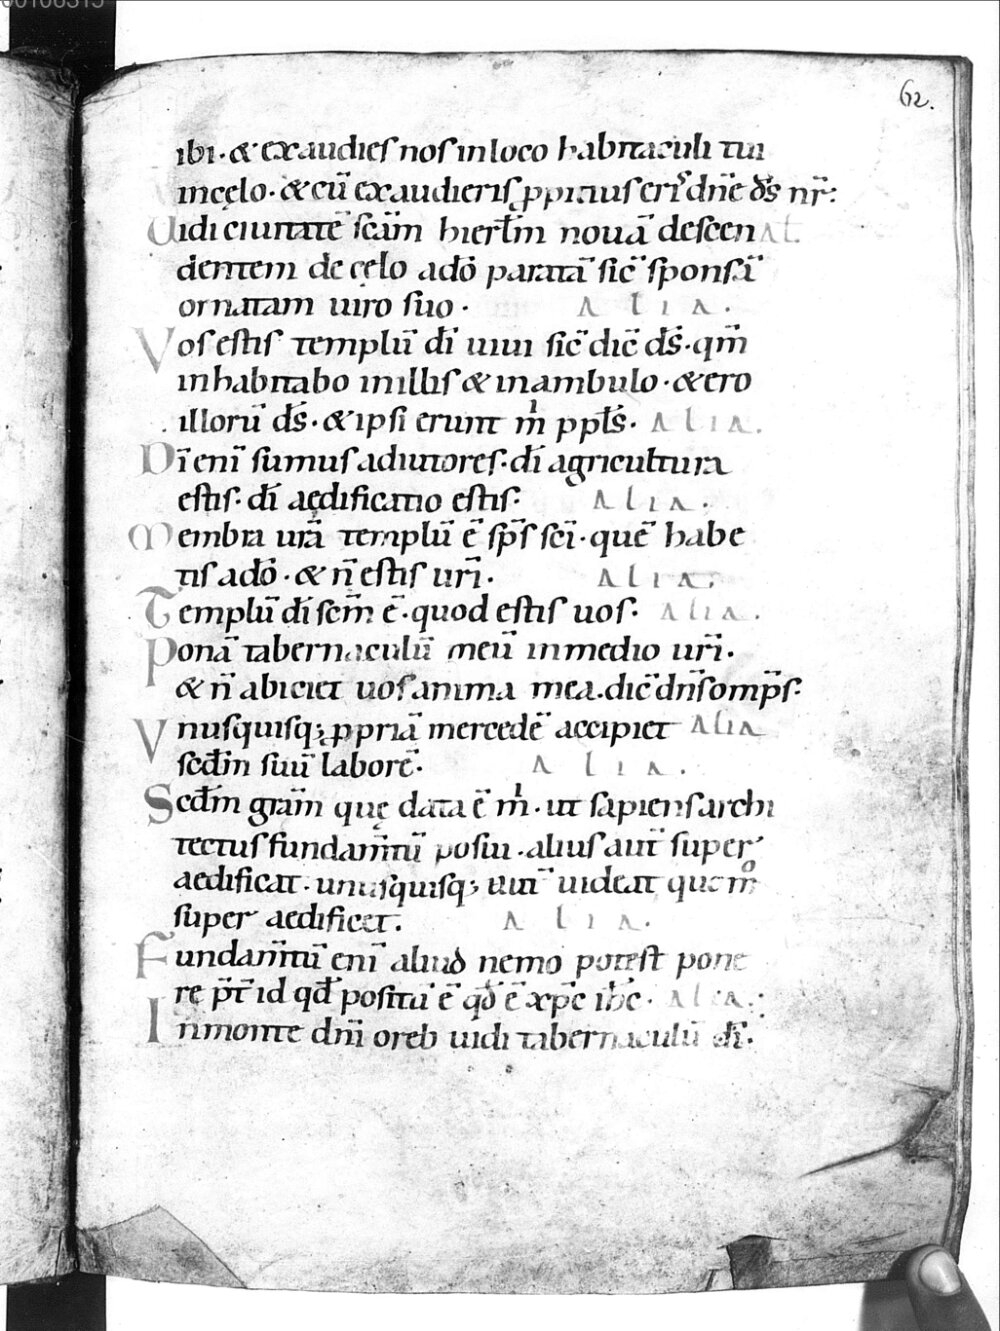 00106315
62.
ibi · & exaudies nos in loco habitaculi tui
in cęlo · & cū exaudieris ꝓpitius eris dn̄e ds̄ nr̄:
Uidi ciuitatē scām hierl̄m nouā descen Al.
dentem de cęlo a dō paratā sic̄ sponsā
ornatam uiro suo · A l i a .
Vos estis templū dī uiui sic̄ dic̄ ds̄ · qm̄
inhabitabo in illis & inambulo · & ero
illorū ds̄ · & ipsi erunt m̄ ppl̄s · A l i A .
Dī enī sumus adiutores · dī agricultura
estis · dī aędificatio estis · A l i A .
Membra urā templū ē sp̄s scī · quē habe
tis a dō · & n̄ estis urī · A l i A .
Templū dī scm̄ ē · quod estis uos · A l i A .
Ponā tabernaculū meū in medio urī ·
& n̄ abiciet uos anima mea · dic̄ dn̄s omp̄s ·
Vnusquisq; ꝓpriā mercedē accipiet Alia
scd̄m suū laborē · A l i A .
Scd̄m gram̄ quę data ē m̄ · ut sapiens archi
tectus fundam̄tū posui · alius aut̄ super
aedificat · unusquisq; aut̄ uideat quom̊
super aedificet . A l i A .
Fundam̄tū enī aliud nemo potest pone
re p̄t id qd̄ positū ē qd̄ ē xp̄c ih̄c · A l i A .
In monte dn̄i oreb uidi tabernaculū dī ·